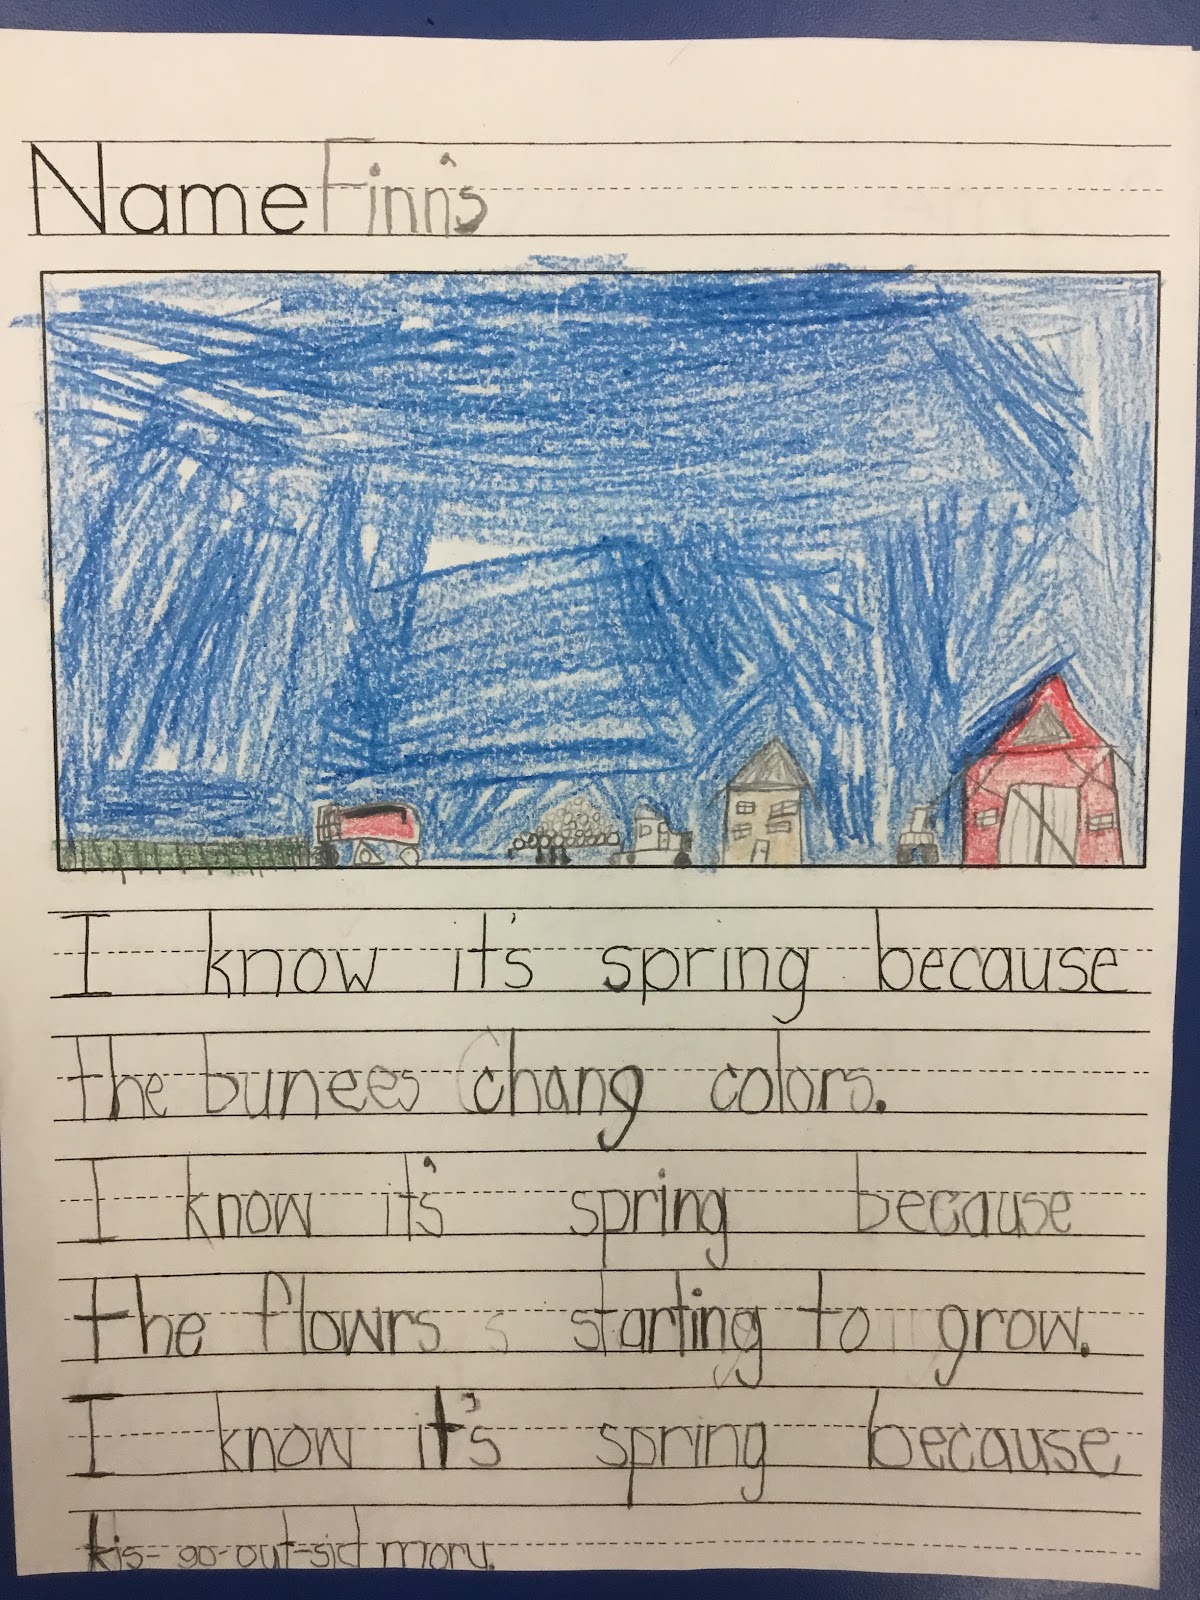 Name Finn's
I know it's spring because
the bunees chang colors.
I know it's spring because
the flowrs starting to grow.
I know it's spring because
kis-go-out-sid moru.